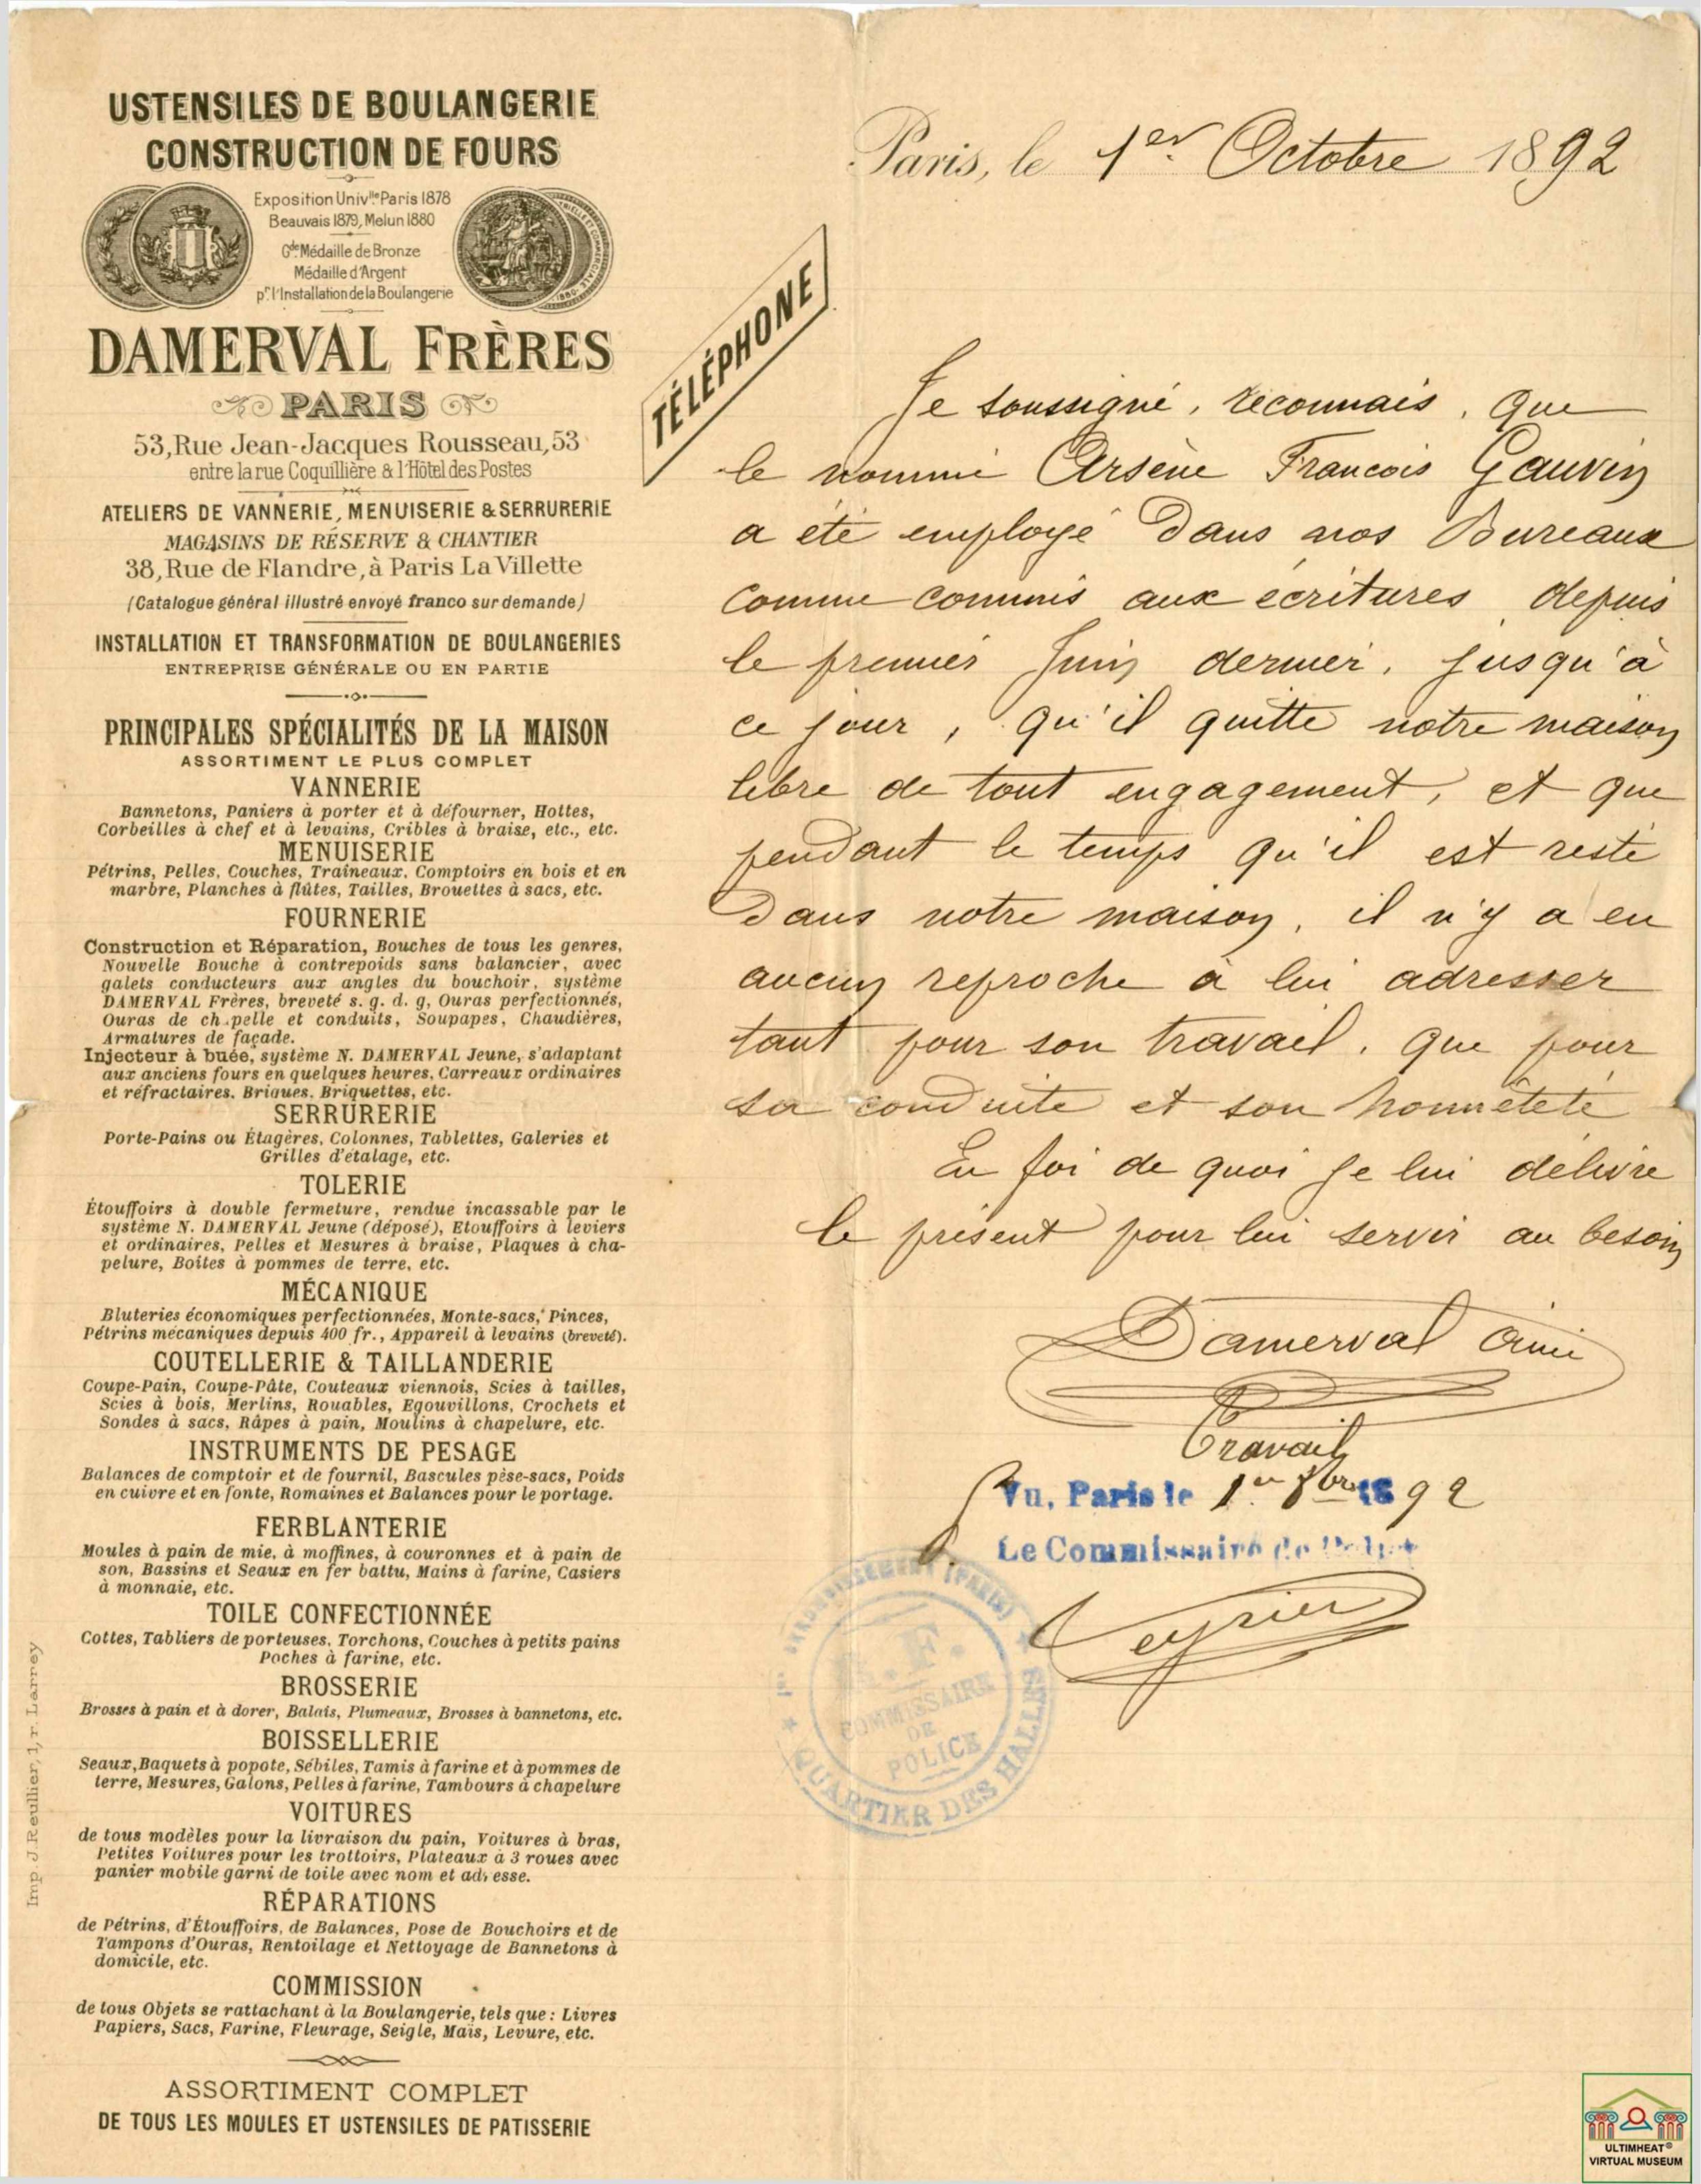 USTENSILES DE BOULANGERIE
CONSTRUCTION DE FOURS
Exposition Univlle Paris 1878
Beauvais 1879, Melun 1880
Gde Médaille de Bronze
Médaille d'Argent
pr l'Installation de la Boulangerie
DAMERVAL FRÈRES
PARIS
53, Rue Jean-Jacques Rousseau, 53
entre la rue Coquillière & l'Hôtel des Postes
ATELIERS DE VANNERIE, MENUISERIE & SERRURERIE
MAGASINS DE RÉSERVE & CHANTIER
38, Rue de Flandre, à Paris La Villette
(Catalogue général illustré envoyé franco sur demande)
INSTALLATION ET TRANSFORMATION DE BOULANGERIES
ENTREPRISE GÉNÉRALE OU EN PARTIE
PRINCIPALES SPÉCIALITÉS DE LA MAISON
ASSORTIMENT LE PLUS COMPLET
VANNERIE
Bannetons, Paniers à porter et à défourner, Hottes,
Corbeilles à chef et à levains, Cribles à braise, etc., etc.
MENUISERIE
Pétrins, Pelles, Couches, Traîneaux, Comptoirs en bois et en
marbre, Planches à flûtes, Tailles, Brouettes à sacs, etc.
FOURNERIE
Construction et Réparation, Bouches de tous les genres,
Nouvelle Bouche à contrepoids sans balancier, avec
galets conducteurs aux angles du bouchoir, système
DAMERVAL Frères, breveté s. g. d. g, Ouras perfectionnés,
Ouras de chapelle et conduits, Soupapes, Chaudières,
Armatures de façade.
Injecteur à buée, système N. DAMERVAL Jeune, s'adaptant
aux anciens fours en quelques heures, Carreaux ordinaires
et réfractaires, Briques, Briquettes, etc.
SERRURERIE
Porte-Pains ou Étagères, Colonnes, Tablettes, Galeries et
Grilles d'étalage, etc.
TOLERIE
Étouffoirs à double fermeture, rendue incassable par le
système N. DAMERVAL Jeune (déposé), Etouffoirs à leviers
et ordinaires, Pelles et Mesures à braise, Plaques à cha-
pelure, Boîtes à pommes de terre, etc.
MÉCANIQUE
Bluteries économiques perfectionnées, Monte-sacs, Pinces,
Pétrins mécaniques depuis 400 fr., Appareil à levains (breveté).
COUTELLERIE & TAILLANDERIE
Coupe-Pain, Coupe-Pâte, Couteaux viennois, Scies à tailles,
Scies à bois, Merlins, Rouables, Egouvillons, Crochets et
Sondes à sacs, Râpes à pain, Moulins à chapelure, etc.
INSTRUMENTS DE PESAGE
Balances de comptoir et de fournil, Bascules pèse-sacs, Poids
en cuivre et en fonte, Romaines et Balances pour le portage.
FERBLANTERIE
Moules à pain de mie, à moffines, à couronnes et à pain de
son, Bassins et Seaux en fer battu, Mains à farine, Casiers
à monnaie, etc.
TOILE CONFECTIONNÉE
Cottes, Tabliers de porteuses, Torchons, Couches à petits pains
Poches à farine, etc.
BROSSERIE
Brosses à pain et à dorer, Balais, Plumeaux, Brosses à bannetons, etc.
BOISSELLERIE
Seaux, Baquets à popote, Sébiles, Tamis à farine et à pommes de
terre, Mesures, Galons, Pelles à farine, Tambours à chapelure
VOITURES
de tous modèles pour la livraison du pain, Voitures à bras,
Petites Voitures pour les trottoirs, Plateaux à 3 roues avec
panier mobile garni de toile avec nom et adresse.
RÉPARATIONS
de Pétrins, d'Étouffoirs, de Balances, Pose de Bouchoirs et de
Tampons d'Ouras, Rentoilage et Nettoyage de Bannetons à
domicile, etc.
COMMISSION
de tous Objets se rattachant à la Boulangerie, tels que : Livres
Papiers, Sacs, Farine, Fleurage, Seigle, Maïs, Levure, etc.
ASSORTIMENT COMPLET
DE TOUS LES MOULES ET USTENSILES DE PATISSERIE
Imp J. Reullier, 1, r. Larrey
TÉLÉPHONE
Paris, le 1er Octobre 1892
Je soussigné, reconnais, que
le nommé Arsène Francois Gauvin
a été employé Dans nos Bureaux
Comme commis aux écritures depuis
le premier Juin dernier, jusqu'à
ce jour, qu'il quitte notre maison
libre de tout engagement, et que
pendant le temps qu'il est resté
Dans notre maison, il n'y a eu
aucun reproche à lui adresser
tant pour son travail, que pour
sa conduite et son honnêteté
En foi de quoi je lui délivre
le présent pour lui servir au besoin
Damerval Ainé
Travail
Vu, Paris le 1er 8bre 1892
Le Commissaire de Police
1er ARRONDISSEMENT (PARIS)
R.F.
COMMISSAIRE
DE
POLICE
QUARTIER DES HALLES
ULTIMHEAT®
VIRTUAL MUSEUM